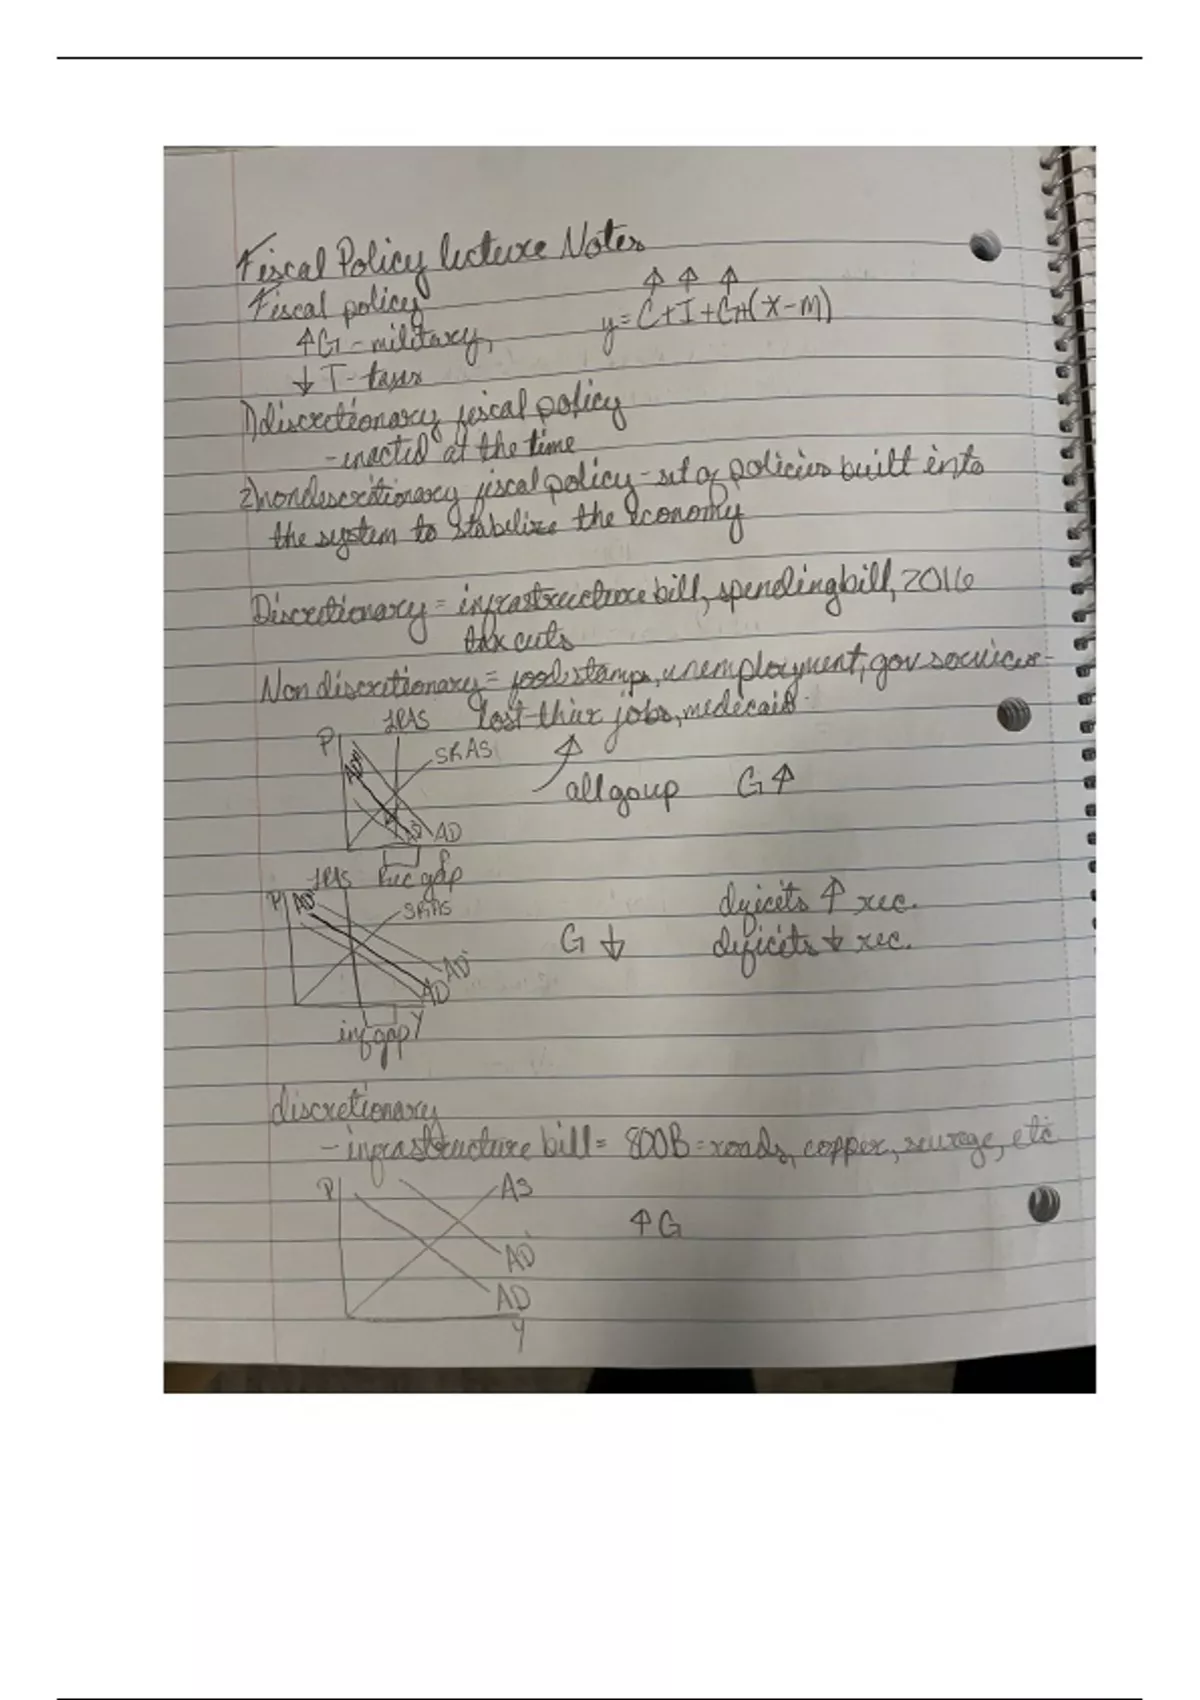 Fiscal Policy lecture Notes
Fiscal policy
↑G - military,
y = C + I + G + (X - M)
↑ ↑ ↑
↓ T - taxes
1) discretionary fiscal policy
- enacted at the time
2) nondescretionary fiscal policy - set of policies built into
the system to stabelize the economy
Discretionary = infrastructure bill, spending bill, 2016
tax cuts
Non discretionary = food stamps, unemployment, gov services -
lost their jobs, medicaid.
P
LRAS
SRAS
AD
Rec gap
↑
all go up
G ↑
P
LRAS
AD
SRAS
AD'
AD
inf gap
Y
G ↓
deficits ↑ rec.
deficits ↓ rec.
discretionary
- infrastructure bill = 800B = roads, copper, sewege, etc
P
AS
AD'
AD
Y
↑ G